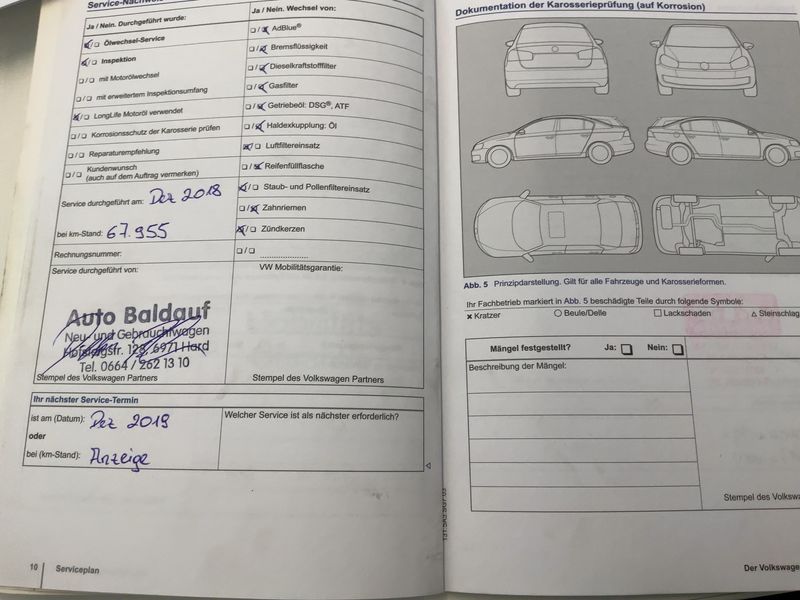 Service-Nachweis
Ja / Nein. Durchgeführt wurde:
☒/☐ Ölwechsel-Service
☒/☐ Inspektion
☐/☐ mit Motorölwechsel
☐/☐ mit erweitertem Inspektionsumfang
☒/☐ LongLife Motoröl verwendet
☐/☐ Korrosionsschutz der Karosserie prüfen
☐/☐ Reparaturempfehlung
☐/☐ Kundenwunsch
(auch auf dem Auftrag vermerken)
Service durchgeführt am: Dez 2018
bei km-Stand: 67.955
Rechnungsnummer:
Service durchgeführt von:
Auto Baldauf
Neu und Gebrauchtwagen
6971 Hard
Tel. 0664 / 262 13 10
Stempel des Volkswagen Partners
Ja / Nein. Wechsel von:
☐/☒ AdBlue®
☐/☒ Bremsflüssigkeit
☐/☒ Dieselkraftstofffilter
☐/☒ Gasfilter
☐/☒ Getriebeöl: DSG®, ATF
☐/☒ Haldexkupplung: Öl
☒/☐ Luftfiltereinsatz
☐/☒ Reifenfüllflasche
☒/☐ Staub- und Pollenfiltereinsatz
☐/☒ Zahnriemen
☒/☐ Zündkerzen
☐/☐ ....................
VW Mobilitätsgarantie:
Stempel des Volkswagen Partners
Ihr nächster Service-Termin
ist am (Datum): Dez 2019
oder
bei (km-Stand): Anzeige
Welcher Service ist als nächster erforderlich?
10 Serviceplan
Dokumentation der Karosserieprüfung (auf Korrosion)
Abb. 5 Prinzipdarstellung. Gilt für alle Fahrzeuge und Karosserieformen.
Ihr Fachbetrieb markiert in Abb. 5 beschädigte Teile durch folgende Symbole:
× Kratzer ○ Beule/Delle □ Lackschaden △ Steinschlag
Mängel festgestellt? Ja: ☐ Nein: ☐
Beschreibung der Mängel:
Stempel des Volkswa
Der Volkswage